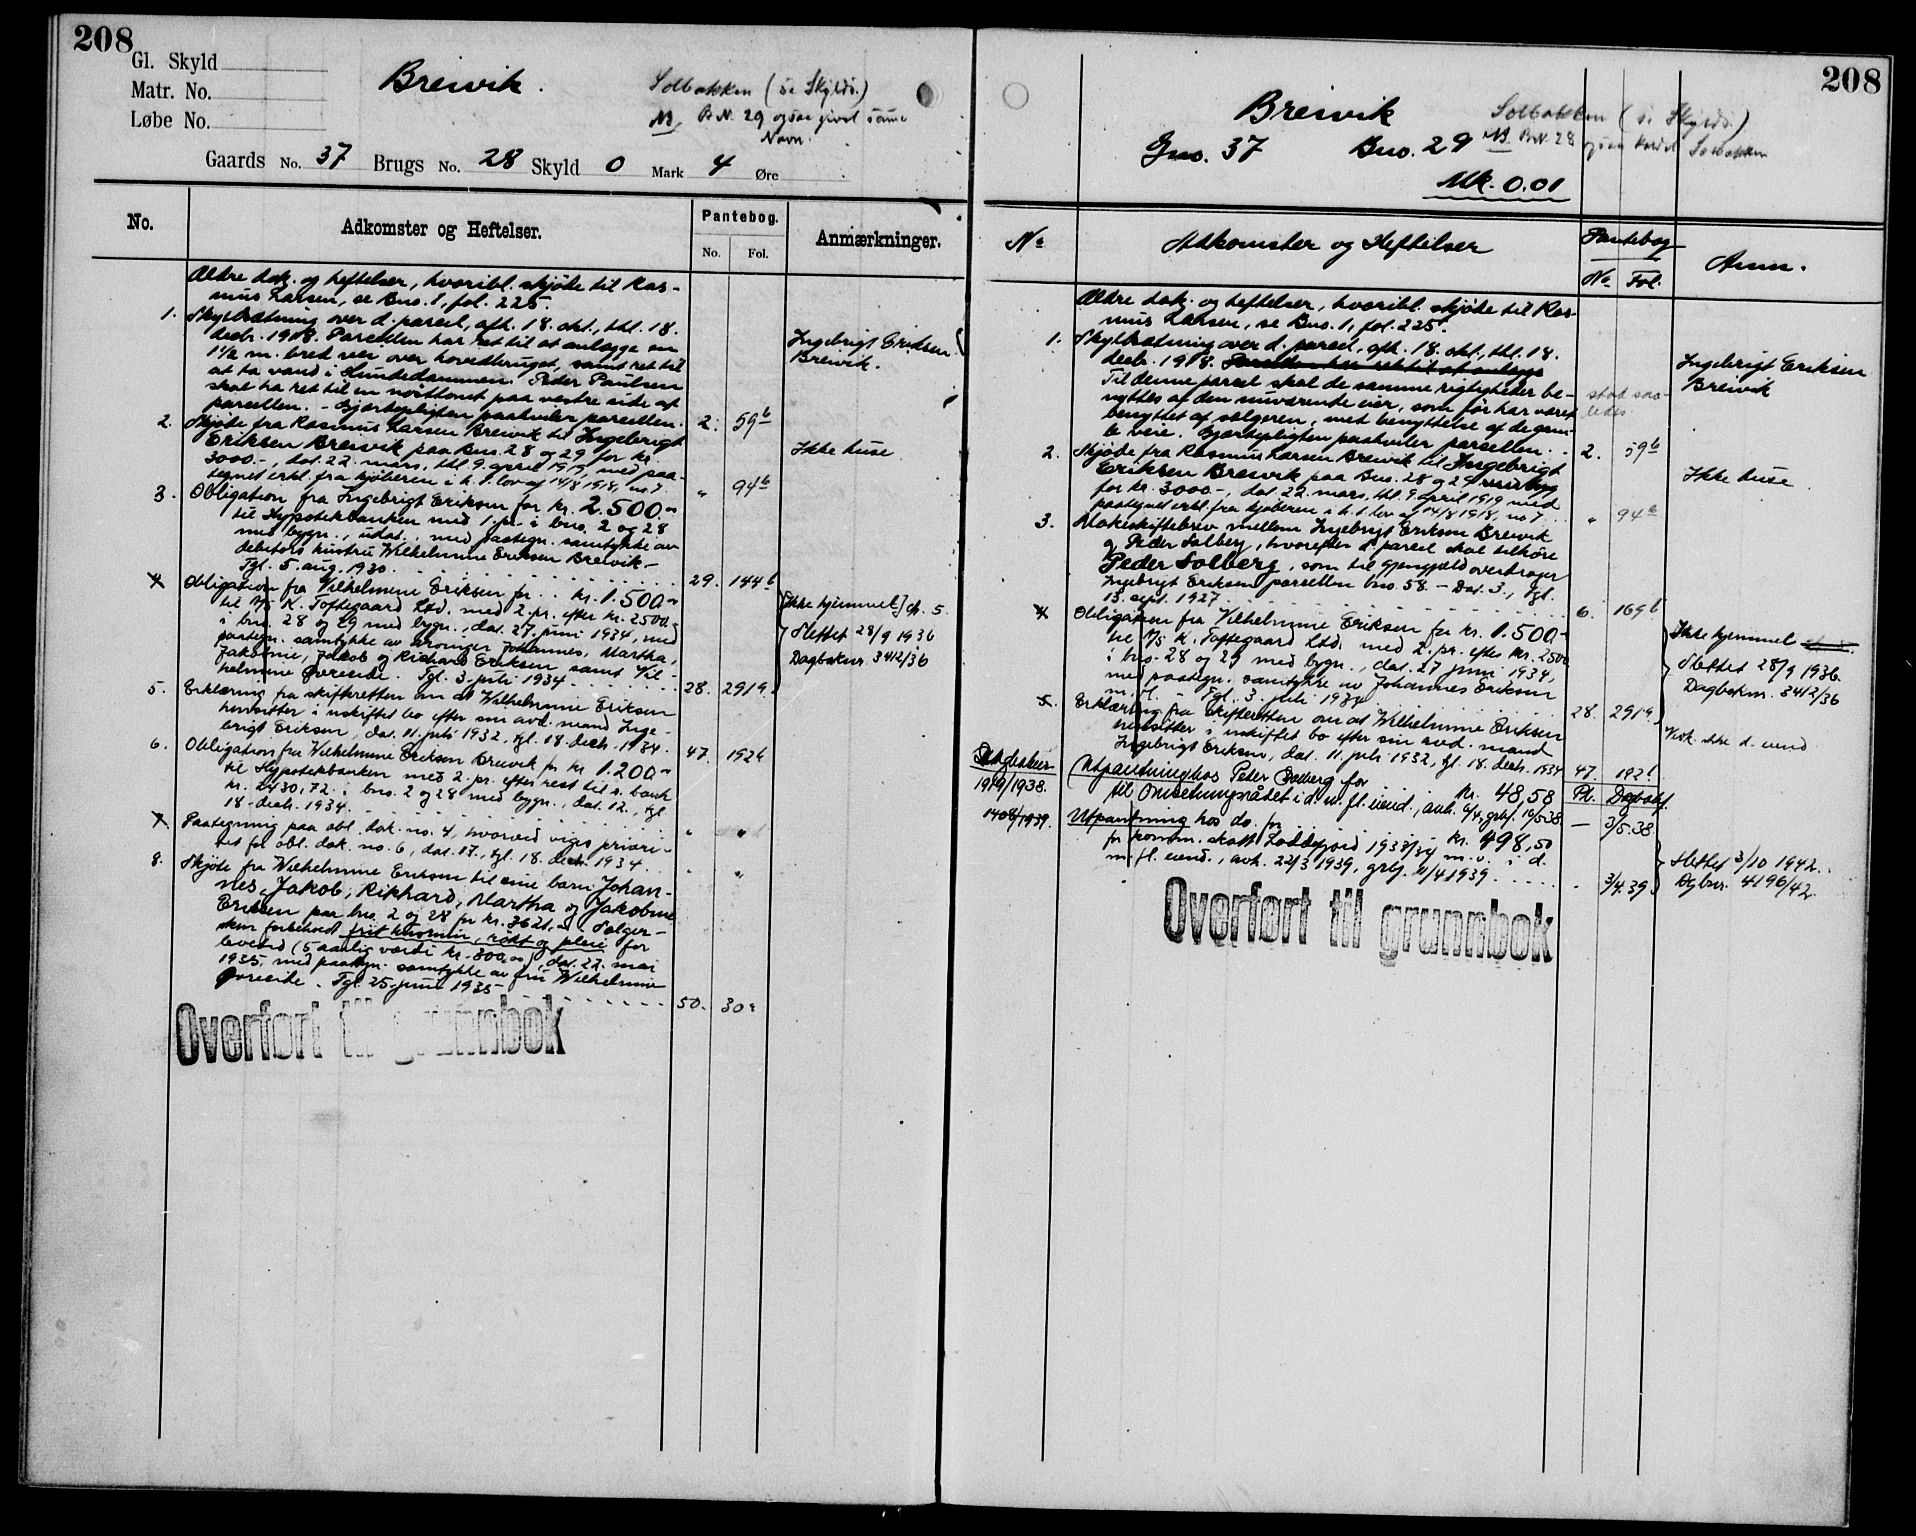 208
Gl. Skyld
Matr. No.
Løbe No.
Breivik.
Solbakken (se Skylds.)
NB B.N. 29 ogsaa givet samme
Navn.
Gaards No. 37 Brugs No. 28 Skyld 0 Mark 4 Øre
No.
Adkomster og Heftelser.
Pantebog.
No. Fol.
Anmærkninger.
Ældre dok. og heftelser, hvoribl. skjöte til Ras-
mus Larsen, se Bno. 1, fol. 225.
1. Skyldsætning over d. parcel, afh. 18. okt., thl. 18.
decb. 1918. Parcellen har ret til at anlægge en
1½ m. bred vei over hovedbruget, samt ret til
at ta vand i Hundedammen. Peder Paulsen
skal ha ret til en nösttomt paa vestre side af
parcellen. - Gjærdepligten paahviler parcellen. 2. 59b
Ingebrigt Eriksen
Breivik.
2. Skjöte fra Rasmus Larsen Breivik til Ingebrigt
Eriksen Breivik paa Bno. 28 og 29 for kr.
3000.-, dat. 22. mars, thl. 9. april 1919, med paa-
tegnet erkl. fra kjöberen i h. t. lov af 14/8 1918, no 7. " 94b
Ikke huse
3. Obligation fra Ingebrigt Eriksen for kr. 2.500.-
til Hypotekbanken med 1. pr. i bno. 2 og 28
med bygn., udat., med paategn. samtykke av
debitors hustru Wilhelmine Eriksen Breivik.-
Tgl. 5. aug. 1930. 29. 144b
4. Obligation fra Vilhelmine Eriksen for kr. 1.500.-
til A/S K. Toftegaard Ltd. med 2. pr. efter kr. 2500.-
i bno. 28 og 29 med bygn., dat. 27. juni 1934, med
paategn. samtykke av arvinger Johannes, Martha,
Jakobine, Jakob og Richard Eriksen samt Vil-
helmine Øvreeide. Tgl. 3. juli 1934. 28. 291a.
[Ikke hjemmel] cfr. 5.
Slettet 28/9 1936
Dagboknr. 3412/36
5. Erklæring fra skifteretten om at Wilhelmine Eriksen
hensitter i uskiftet bo efter sin avd. mand Inge-
brigt Eriksen, dat. 11. juli 1932, tgl. 18. decb. 1934. 47. 192b
6. Obligation fra Wilhelmine Eriksen Breivik for kr. 1.200.-
til Hypotekbanken med 2. pr. efter rest til s. bank
kr. 2430,72. i bno. 2 og 28 med bygn., dat. 12., tgl.
18. decb. 1934. " "
7. Paategning paa obl. dok. no. 4, hvorved viges priori-
tet for obl. dok. no. 6, dat. 17., tgl. 18. decb. 1934. " "
8. Skjöte fra Wilhelmine Eriksen til sine barn Johan-
nes, Jakob, Rikhard, Martha og Jakobine
Eriksen paa bno. 2 og 28 for kr. 3621,-. Sælger-
sken forbeholdt frit husrum, røkt og pleie for
levetid (5 aarlig værdi kr. 300,00), dat. 22. mai
1935, med paategn. samtykke av fru Wilhelmine
Øvreeide. Tgl. 25. juni 1935 50. 30a
Overført til grunnbok
208
Breivik
Solbakken (se Skylds.)
Gno. 37 Bno. 29 NB BN. 28 ogsaa kaldet Solbakken
Mk. 0.01
No
Adkomster og Heftelser
Pantebog
No Fol.
Anm.
Ældre dok. og heftelser, hvoribl. skjöte til Ras-
mus Larsen, se Bno. 1, fol. 225.
1. Skyldsætning over d. parcel, afh. 18. okt., thl. 18.
decb. 1918. Parcellen har ret til at anlægge
Til denne parcel skal de samme rigtigheder be-
nyttes af den nuværende eier, som før har været
benyttet af sælgeren, med benyttelse af de gam-
le veie. Gjærdepligten paahviler parcellen. 2. 59b
Ingebrigt Eriksen
Breivik
2. Skjöte fra Rasmus Larsen Breivik til Ingebrigt
Eriksen Breivik paa Bno. 28 og 29
for kr. 3000.-, dat. 22. mars, thl. 9. april 1919 med
paategnet erkl. fra kjöberen i h. t. lov af 14/8 1918, no 7. " 94a
Ikke huse.
3. Makeskiftebrev mellem Ingebrigt Eriksen Breivik
og Peder Solberg, hvorefter d. parcel skal tilhöre
Peder Solberg, som til gjengjæld overdrager
Ingebrigt Eriksen parcellen bno. 58. - Dat. 3., tgl.
13. sept. 1927. 6. 169b
4. Obligation fra Vilhelmine Eriksen for kr. 1.500.-
til A/S K. Toftegaard Ltd. med 2. pr. efter kr. 2500
i bno. 28 og 29 med bygn., dat. 27 juni 1934,
med paategn. samtykke av Johannes Eriksen
m. fl. - Tgl. 3. juli 1934 28. 291a.
Ikke hjemmel
Slettet 28/9 1936.
Dagboknr. 3412/36
5. Erklæring fra Skifteretten om at Wilhelmine Eriksen
hensitter i uskiftet bo efter sin avd. mand
Ingebrigt Eriksen, dat. 11. juli 1932, tgl. 18. decb. 1934 47. 192b
Vedk. ikke d. eiend
Dagboknr
1919/1938. Utpantning hos Peter Solberg for kr. 48,58
til Omsetningsrådet i d. m. fl. eiend., avh. 6/4, grbf. 10/5 38. Pl. Dagbokf.
— 3/5.38.
1408/1939. Utpantning hos do. for kr. 498,50
for komm. skatt Loddefjord 1933/34 m. v. i d.
m. fl. eiend., avh. 22/3 1939, grbf. 11/4 1939. 3/4.39.
Slettet 3/10 1942.
Dgbnr. 4196/42
Overført til grunnbok